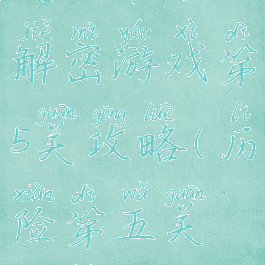 jiě mì yóu xì dì
解密游戏第
guān gōng lüè lì
5关攻略(历
xiǎn dì wǔ guān
险第五关